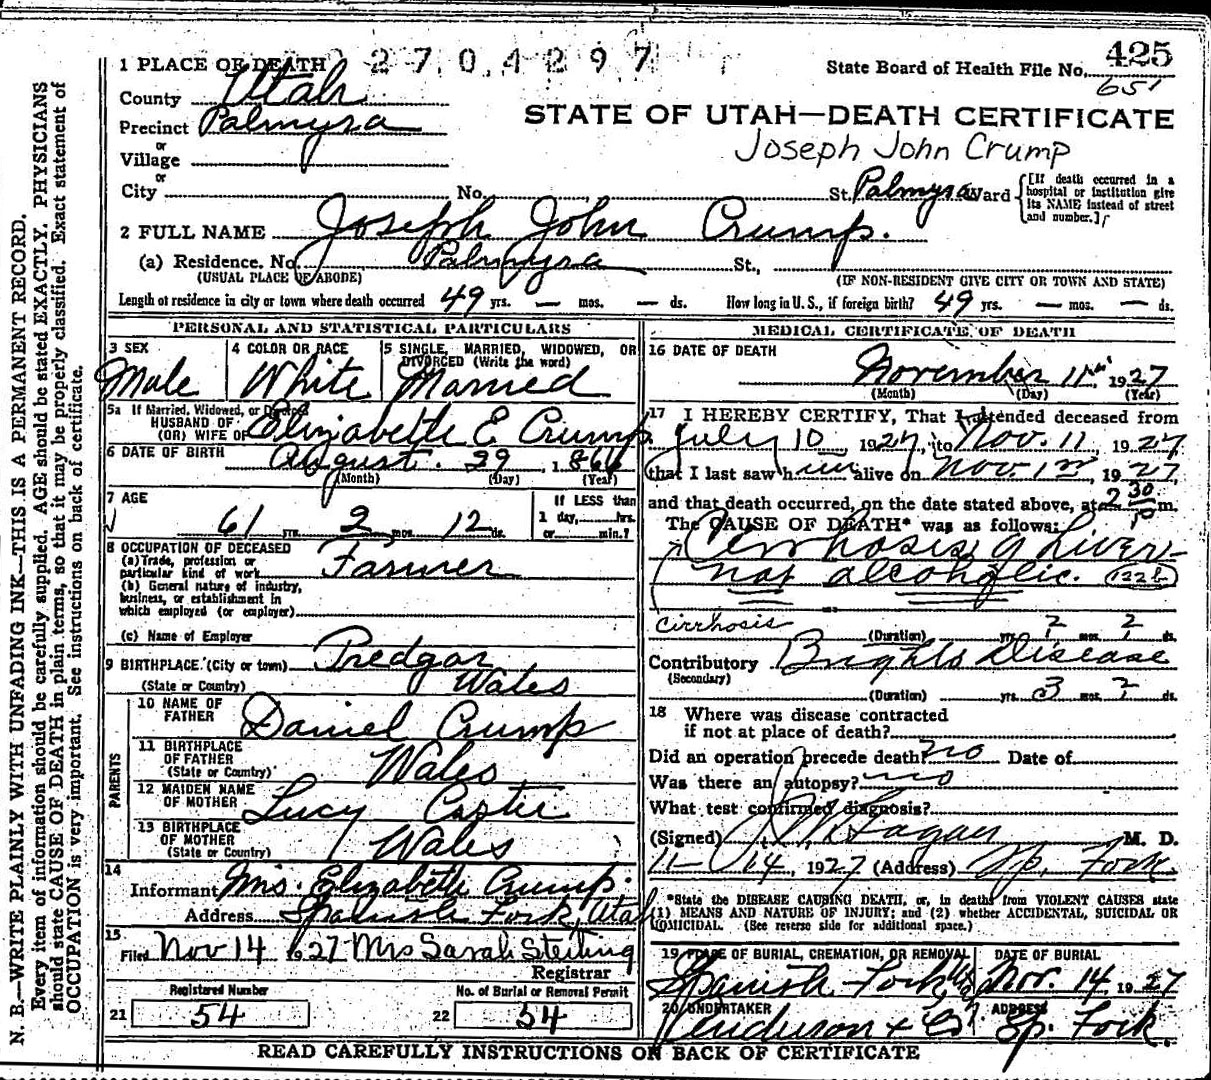 N. B.—WRITE PLAINLY WITH UNFADING INK—THIS IS A PERMANENT RECORD.
Every item of information should be carefully supplied. AGE should be stated EXACTLY. PHYSICIANS
should state CAUSE OF DEATH in plain terms, so that it may be properly classified. Exact statement of
OCCUPATION is very important. See instructions on back of certificate.
2704297
State Board of Health File No. 425
651
STATE OF UTAH—DEATH CERTIFICATE
Joseph John Crump
1 PLACE OF DEATH
County Utah
Precinct Palmyra
or
Village
or
City No. St. Palmyra Ward
[If death occurred in a
hospital or institution give
its NAME instead of street
and number.]
2 FULL NAME Joseph John Crump.
(a) Residence. No. Palmyra St.,
(USUAL PLACE OF ABODE) (IF NON-RESIDENT GIVE CITY OR TOWN AND STATE)
Length of residence in city or town where death occurred 49 yrs. — mos. — ds. How long in U. S., if foreign birth? 49 yrs. — mos. — ds.
PERSONAL AND STATISTICAL PARTICULARS
3 SEX
Male
4 COLOR OR RACE
White
5 SINGLE, MARRIED, WIDOWED, OR
DIVORCED (Write the word)
Married
5a If Married, Widowed, or Divorced
HUSBAND OF
(OR) WIFE OF Elizabette E Crump
6 DATE OF BIRTH August. 29, 1866
(Month) (Day) (Year)
7 AGE
61 yrs. 2 mos. 12 ds.
If LESS than
1 day,......hrs.
or......min.?
8 OCCUPATION OF DECEASED
(a) Trade, profession or
particular kind of work Farmer
(b) General nature of industry,
business, or establishment in
which employed (or employer)
(c) Name of Employer
9 BIRTHPLACE (City or town) Tredgar
(State or Country) Wales
PARENTS
10 NAME OF
FATHER Daniel Crump
11 BIRTHPLACE
OF FATHER
(State or Country) Wales
12 MAIDEN NAME
OF MOTHER Lucy
13 BIRTHPLACE
OF MOTHER
(State or Country) Wales
14
Informant Mrs. Elizabeth Crump.
Address Spanish Fork, Utah
15
Filed Nov 14 1927 Mrs Sarah Sterling
Registrar
Registered Number
21 54
No. of Burial or Removal Permit
22 54
MEDICAL CERTIFICATE OF DEATH
16 DATE OF DEATH
November 11th 1927
(Month) (Day) (Year)
17 I HEREBY CERTIFY, That I attended deceased from
July 10 1927, to Nov. 11 1927
that I last saw him alive on Nov. 1st, 1927,
and that death occurred, on the date stated above, at 2 30 P m.
The CAUSE OF DEATH* was as follows:
Cirrhosis of Liver—
not alcoholic. 122b
cirrhosis
(Duration) yrs. ? mos. ? ds.
Contributory Brights Disease
(Secondary)
(Duration) yrs. 3 mos. ? ds.
18 Where was disease contracted
if not at place of death?
Did an operation precede death? no Date of
Was there an autopsy? no
What test confirmed diagnosis?
(Signed) Hagan M. D.
11-14, 1927 (Address) Sp. Fork.
*State the DISEASE CAUSING DEATH, or, in deaths from VIOLENT CAUSES state
(1) MEANS AND NATURE OF INJURY; and (2) whether ACCIDENTAL, SUICIDAL OR
HOMICIDAL. (See reverse side for additional space.)
19 PLACE OF BURIAL, CREMATION, OR REMOVAL
Spanish Fork
DATE OF BURIAL
Nov. 14 1927
20 UNDERTAKER
+ Co
ADDRESS
Sp. Fork.
READ CAREFULLY INSTRUCTIONS ON BACK OF CERTIFICATE